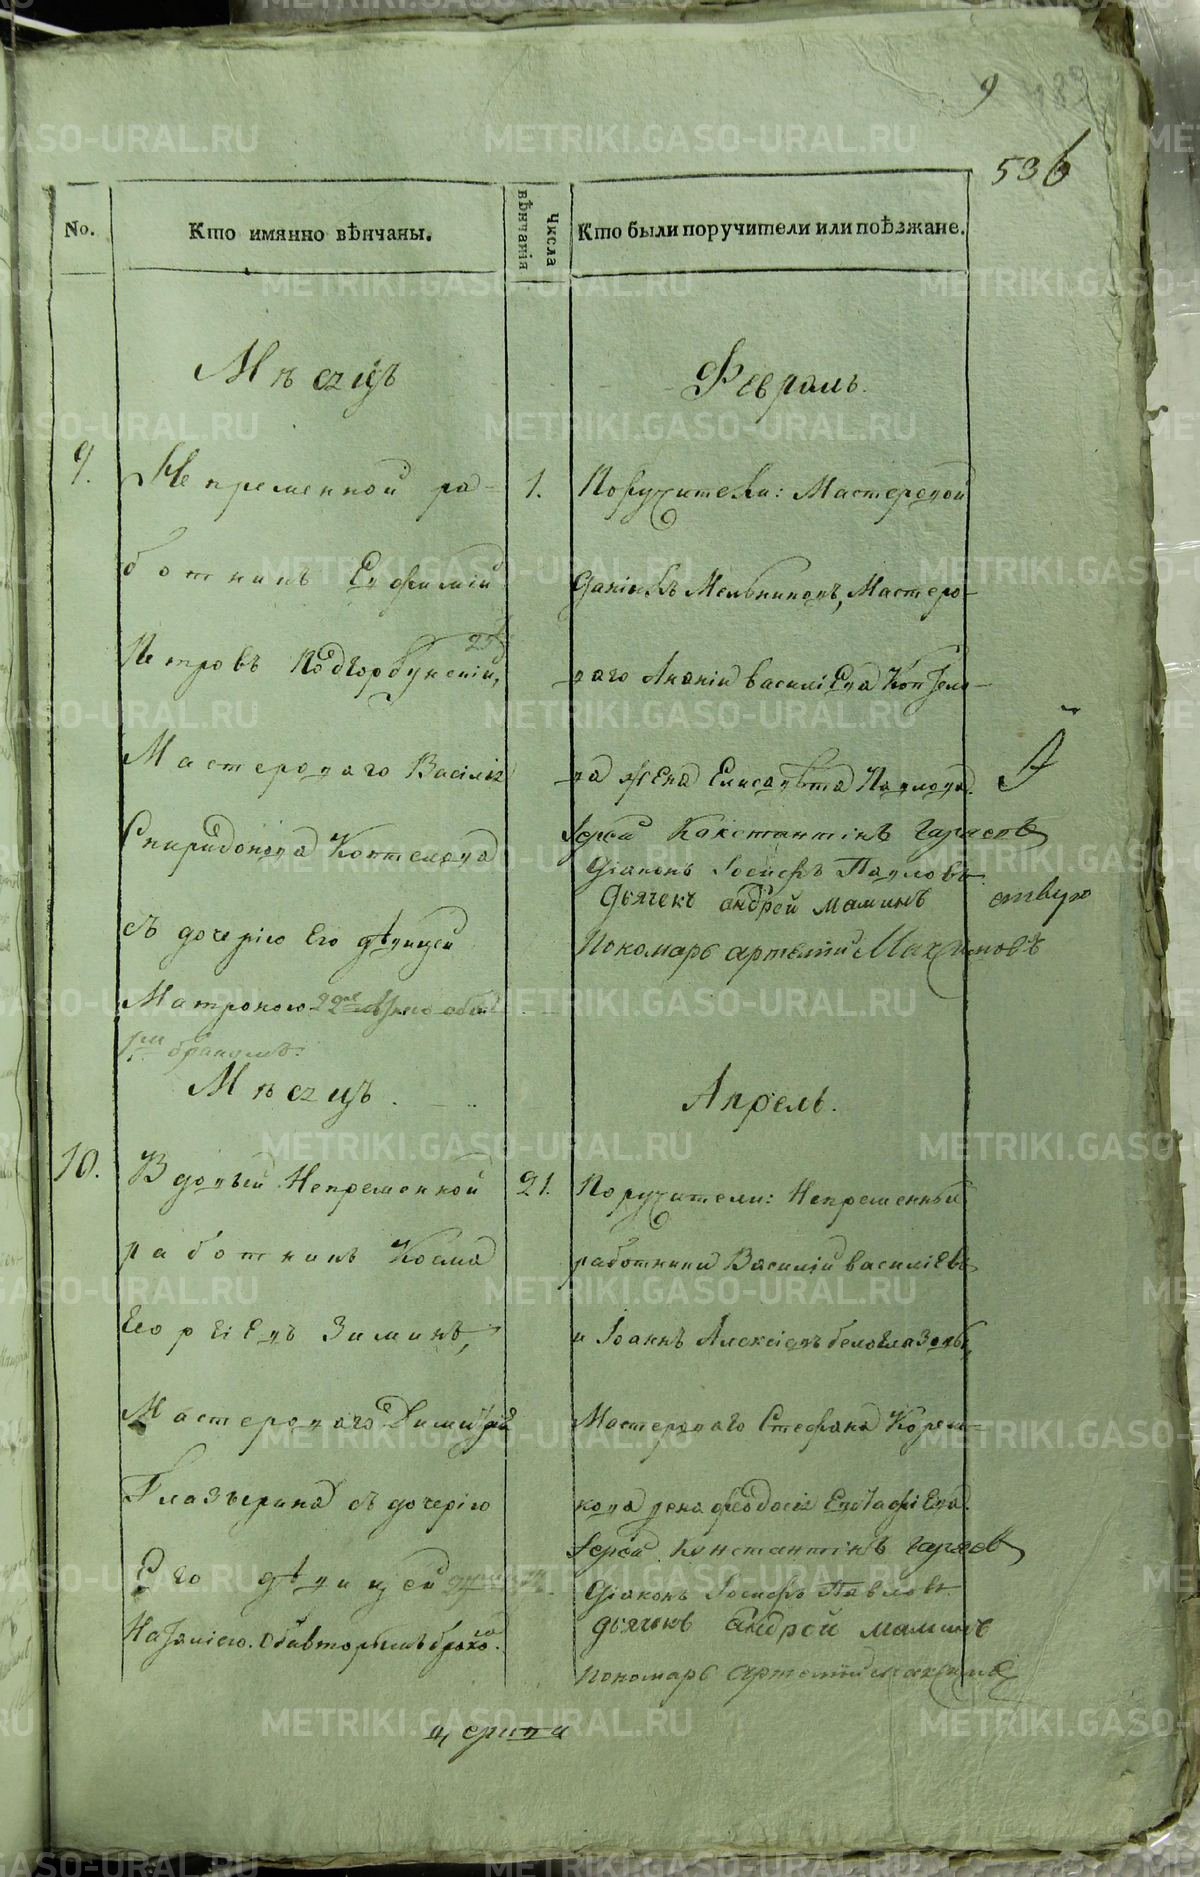 9
536
No.
Кто имянно вѣнчаны.
Числа вѣнчанія
Кто были поручители или поѣзжане.
Мѣсяцъ
Февраль.
9.
Непременной ра-
ботникъ Евфимій
Петровъ Подгорбунскій,
Мастероваго Василія
Спиридонова Коптелова
съ дочерію Его дѣвицей
Матроною
1.
Поручители: Мастеровой
Даніилъ Мельниковъ, Мастеро-
ваго Ананіи Василіева Коптело-
ва жена Елисавѣта Павлова.
Іерей Константинъ
Діаконъ Іосифъ Павловъ
Дьячекъ андрей маминъ
Пономарь артемій Максимовъ
ствую
Мѣсяцъ
Апрель.
10.
Вдовый Непременной
работникъ Косма
Егоріевъ Зиминъ,
Мастероваго Димитрія
Глазырина съ дочерію
Его дѣвицей
Наталіею. Оба вторымъ бракомъ.
21.
Поручители: Непременныи
работники Василий василіевъ
и Іоаннъ Алексіевъ белоглазовы,
Мастероваго Стефана
кова жена феодосія Евстафіева.
Іерей Константинъ
Діаконъ Іосифъ Павловъ
дьячекъ Андрей маминъ
пономарь Артемий максимовъ
METRIKI.GASO-URAL.RU